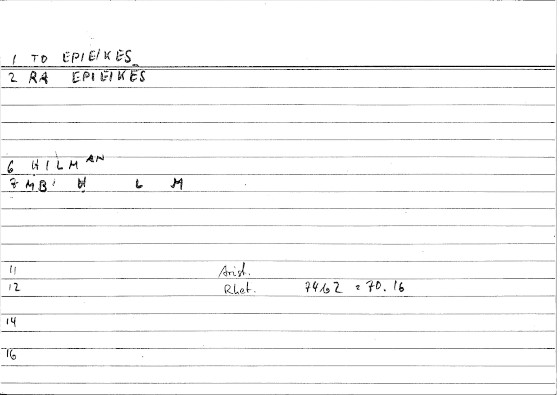 1 TO EPIEIKES
2 RA EPIEIKES
6 HILM AN
7 MBI H L M
11 Arist.
12 Rhet. 74b2 = 70.16
14
16